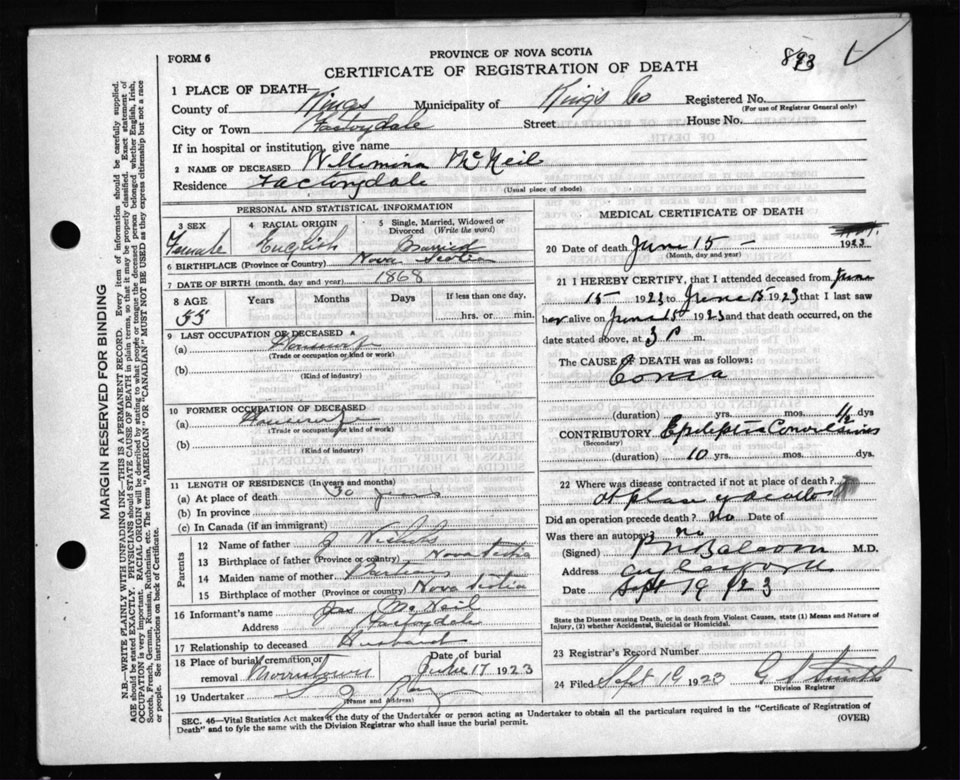 893
FORM 6
PROVINCE OF NOVA SCOTIA
CERTIFICATE OF REGISTRATION OF DEATH
1 PLACE OF DEATH—
County of Kings Municipality of Kings Co Registered No.
(For use of Registrar General only)
City or Town Factorydale Street House No.
If in hospital or institution, give name
2 NAME OF DECEASED Willemina McNeil
Residence Factorydale
(Usual place of abode)
PERSONAL AND STATISTICAL INFORMATION
3 SEX Female
4 RACIAL ORIGIN English
5 Single, Married, Widowed or Divorced (Write the word) Married
6 BIRTHPLACE (Province or Country) Nova Scotia
7 DATE OF BIRTH (month, day and year) 1868
8 AGE Years Months Days If less than one day,
55 hrs. or min.
9 LAST OCCUPATION OF DECEASED
(a) Housewife
(Trade or occupation or kind or work)
(b)
(Kind of industry)
10 FORMER OCCUPATION OF DECEASED
(a) Housewife
(Trade or occupation or kind of work)
(b)
(Kind of industry)
11 LENGTH OF RESIDENCE (In years and months)
(a) At place of death 30 years
(b) In province
(c) In Canada (if an immigrant)
Parents
12 Name of father J
13 Birthplace of father (Province or country) Nova Scotia
14 Maiden name of mother
15 Birthplace of mother (Province or country) Nova Scotia
16 Informant's name Jas McNeil
Address Factorydale
17 Relationship to deceased Husband
18 Place of burial, cremation or removal Morristown Date of burial June 17 1923
19 Undertaker J
(Name and Address)
MEDICAL CERTIFICATE OF DEATH
20 Date of death June 15 — 1923
(Month, day and year)
21 I HEREBY CERTIFY, that I attended deceased from June
15 1923 to June 15 1923 that I last saw
her alive on June 15 1923 and that death occurred, on
date stated above, at 3 P m.
The CAUSE OF DEATH was as follows:
Coma
(duration) yrs. mos. 1/2 dys
CONTRIBUTORY Epileptic Convulsions
(Secondary)
(duration) 10 yrs. mos. dys.
22 Where was disease contracted if not at place of death?
at place of death
Did an operation precede death? no Date of
Was there an autopsy? no
(Signed) Balcom M.D.
Address Aylesford
Date Sept 19/23
State the Disease causing Death, or in death from Violent Causes, state (1) Means and Nature of Injury, (2) whether Accidental, Suicidal or Homicidal.
23 Registrar's Record Number
24 Filed Sept 19 1923 Smith
Division Registrar
SEC. 46—Vital Statistics Act makes it the duty of the Undertaker or person acting as Undertaker to obtain all the particulars required in the "Certificate of Registration of
Death" and to fyle the same with the Division Registrar who shall issue the burial permit. (OVER)
MARGIN RESERVED FOR BINDING
N.B.—WRITE PLAINLY WITH UNFADING INK—THIS IS A PERMANENT RECORD. Every item of information should be carefully supplied.
AGE should be stated EXACTLY. PHYSICIANS should STATE CAUSE OF DEATH in plain terms, so that it may be properly classified. Exact statement of
OCCUPATION is very important. RACIAL ORIGIN will be described by stating to what people or tongue the deceased person belonged whether English, Irish,
Scotch, French, German, Russian, Ruthenian, etc. The terms "AMERICAN" OR "CANADIAN" MUST NOT BE USED as they express citizenship but not a race
or people. See instructions on back of Certificate.